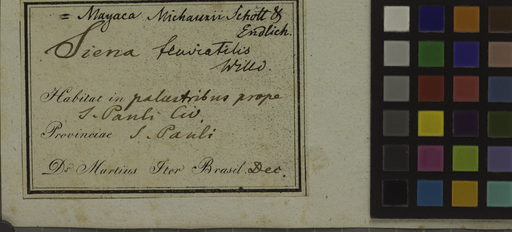 = Mayaca Michauxii Schott &
Endlich.
Siena fluviatilis
Willd.
Habitat in palustribus prope
S. Pauli Civ.
Provinciae S. Pauli
Dr. Martius Iter Brasil. Dec.